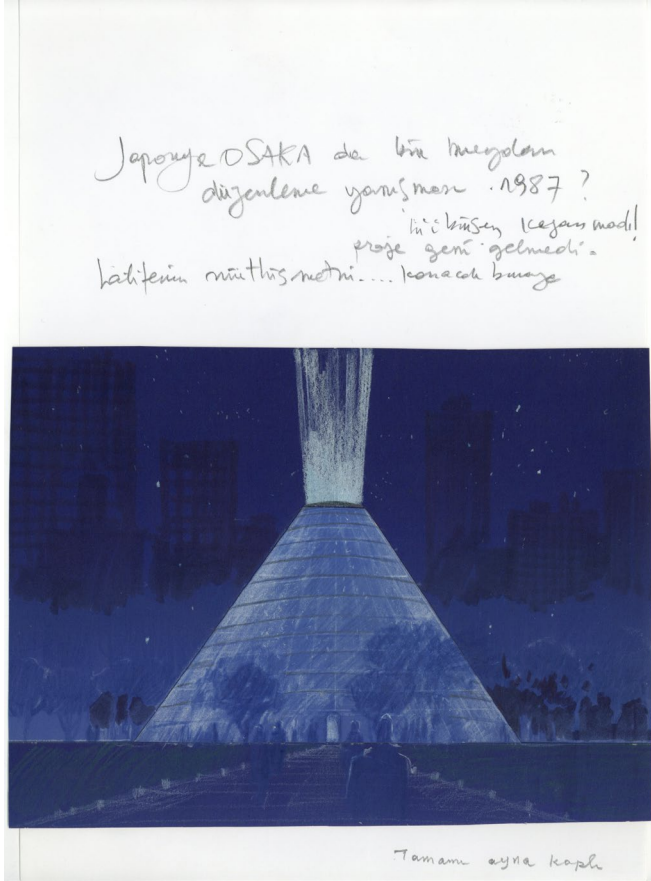 Japonya OSAKA da bir meydan
düzenleme yarışması. 1987 ?
kazanmadı!
proje geri gelmedi.
Latifenin müthiş metni.... konacak buraya
Tamamı ayna kaplı